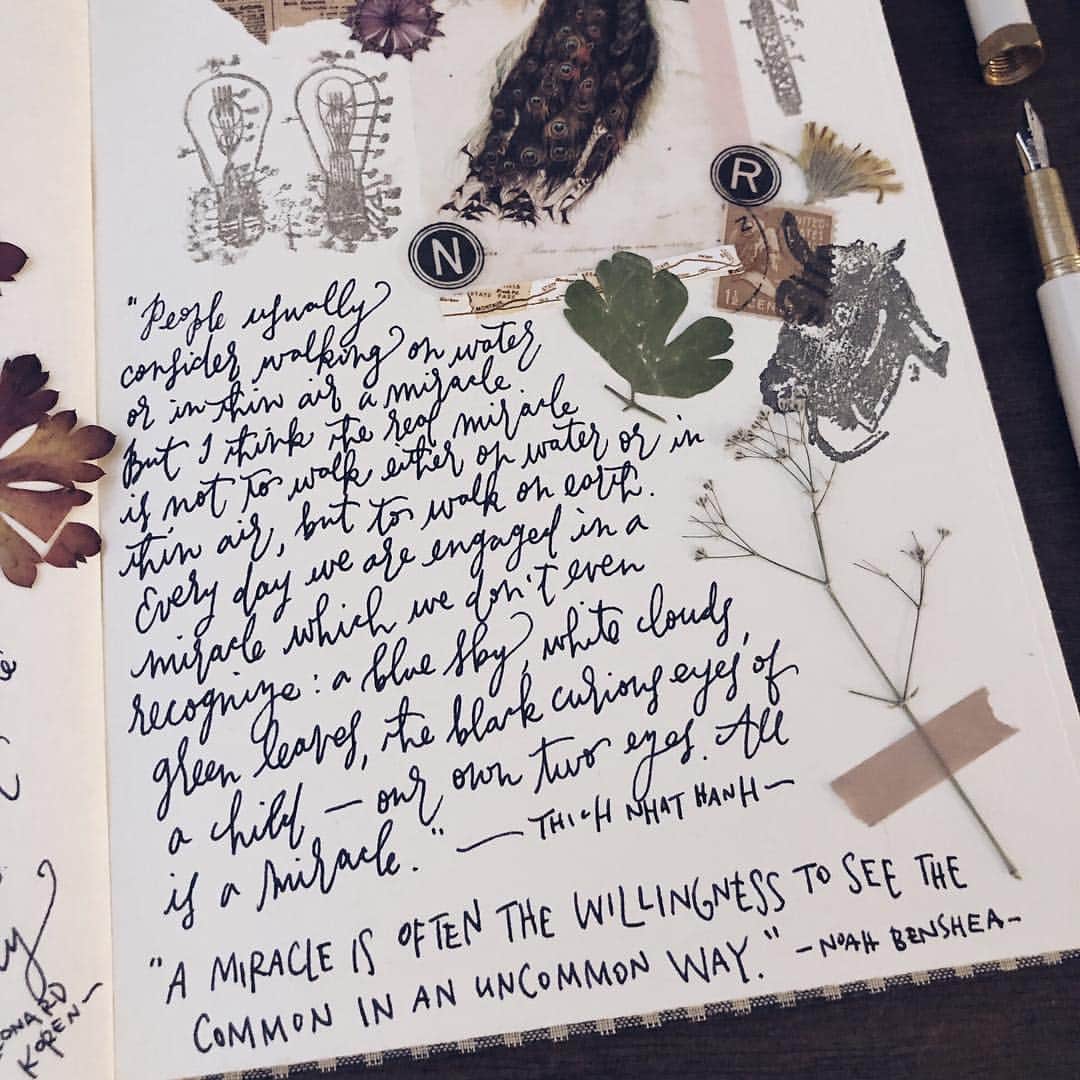 N
R
UNITED
STATES
1½ CENTS
STATE
PASS
MONTAUK
"People usually
consider walking on water
or in thin air a miracle.
But I think the real miracle
is not to walk either on water or in
thin air, but to walk on earth.
Every day we are engaged in a
miracle which we don't even
recognize: a blue sky, white clouds,
green leaves, the black curious eyes of
a child — our own two eyes. All
is a miracle." — THICH NHAT HANH —
"A MIRACLE IS OFTEN THE WILLINGNESS TO SEE THE
COMMON IN AN UNCOMMON WAY." — NOAH BENSHEA —
KOREN —